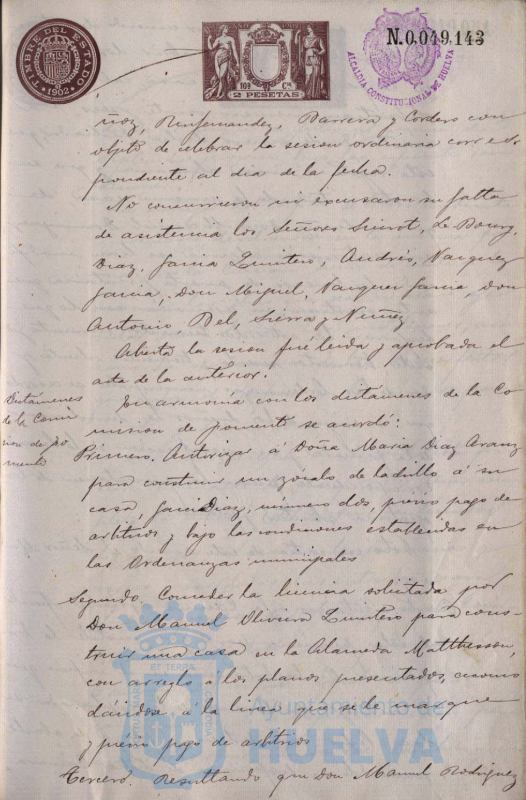 TIMBRE DEL ESTADO
1902
109 Cs
2 PESETAS
N.0,049,143
ALCALDIA CONSTITUCIONAL DE HUELVA
ñoz, Rinfernandez, Barrera y Cordero con
objeto de celebrar la sesion ordinaria corres-
pondiente al dia de la fecha.
No concurrieron ni excusaron su falta
de asistencia los Señores Sierot, de
Diaz, Garcia Quintero, Andrés, Vazquez
Garcia, Don Miguel, Vazquez Garcia, Don
Antonio, Del, Sierra y Nuñez
Abierta la sesion fué leida y aprobada el
acta de la anterior.
Dictámenes
de la Comi
sion de fo
mento
En armonía con los dictámenes de la Co
mision de fomento se acordó:
Primero. Autorizar á Doña Maria Diaz Aranz
para construir un zócalo de ladrillo á su
casa, Garcidiaz, número dos, prévio pago de
arbitrios y bajo las condiciones establecidas en
las Ordenanzas municipales
Segundo. Conceder la licencia solicitada por
Don Manuel Oliviera Quintero para cons-
truir una casa en la Alameda Matthesson,
con arreglo á los planos presentados, acomo
dándose á la linea que se le marque
y prévio pago de arbitrios
Tercero. Resultando que Don Manuel Rodriguez
ET TERRA
Ayuntamiento de
HUELVA